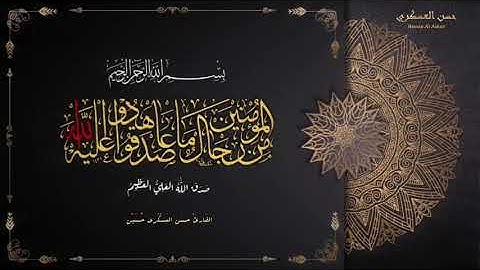 حسن العسكري
Hassan Al Askari
بسم الله الرحمن الرحيم
من المؤمنين رجال صدقوا ما عاهدوا الله عليه
صدق الله العلي العظيم
القارئ حسن العسكري